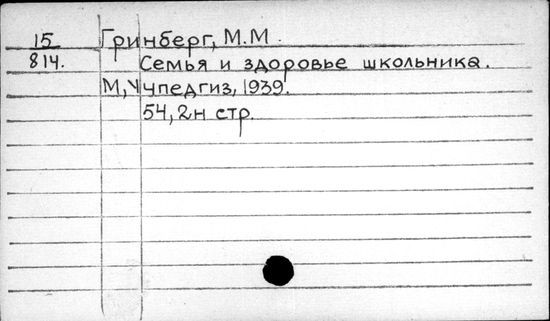 15
814.
Гринберг, М.М.
Семья и здоровье школьника.
М, Учпедгиз, 1939.
54, 2н стр.